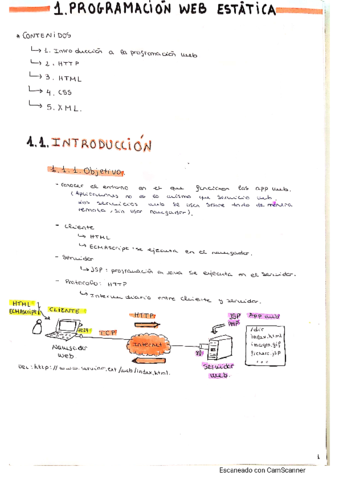 1. PROGRAMACIÓN WEB ESTÁTICA
* CONTENIDOS
↳ 1. Introducción a la programación web
↳ 2. HTTP
↳ 3. HTML
↳ 4. CSS
↳ 5. XML.
1.1. INTRODUCCIÓN
1.1.1. Objetivos
- Conocer el entorno en el que funcionan las app web.
(Aplicaciones no es lo mismo que servicio web,
los servicios web se usan sobre todo de manera
remota, sin usar navegador).
- Cliente
↳ HTML
↳ ECMAScript: se ejecuta en el navegador.
- Servidor
↳ JSP: programación en Java se ejecuta en el servidor.
- Protocolo: HTTP
↳ Intermediario entre cliente y servidor.
HTML
ECMAScript
CLIENTE
HTTP
JSP
PHP
App web
TCP
Internet
/dir
index.html
imagen.gif
fichero.jsp
...
Navegador
web
Servidor
web.
URL: http://www.servidor.ext/web/index.html
1
Escaneado con CamScanner